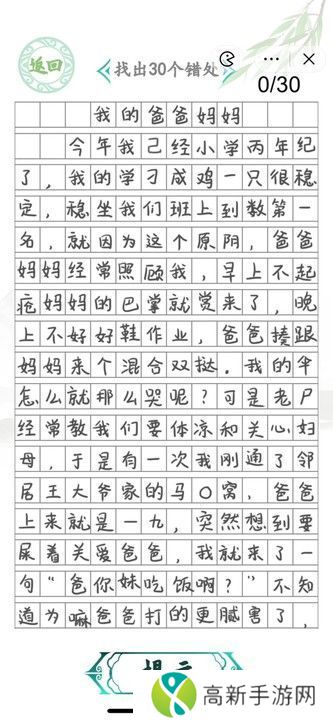 返回
找出30个错处
0/30
我的爸爸妈妈
今年我己经小学丙年纪
了，我的学刁成鸡一只很稳
定，稳坐我们班上到数第一
名，就因为这个原阴，爸爸
妈妈经常照顾我，早上不起
疮妈妈的巴掌就觉来了，晚
上不好好鞋作业，爸爸揍跟
妈妈来个混合双挞。我的
怎么就那么哭呢？可是老尸
经常教我们要体凉和关心妇
母，于是有一次我刚通了邻
居王大爷家的马〇窝，爸爸
上来就是一九，突然想到要
尿着关爱爸爸，我就来了一
句“爸你妹吃饭啊？”不知
道为嘛爸爸打的更腻害了，
高新手游网